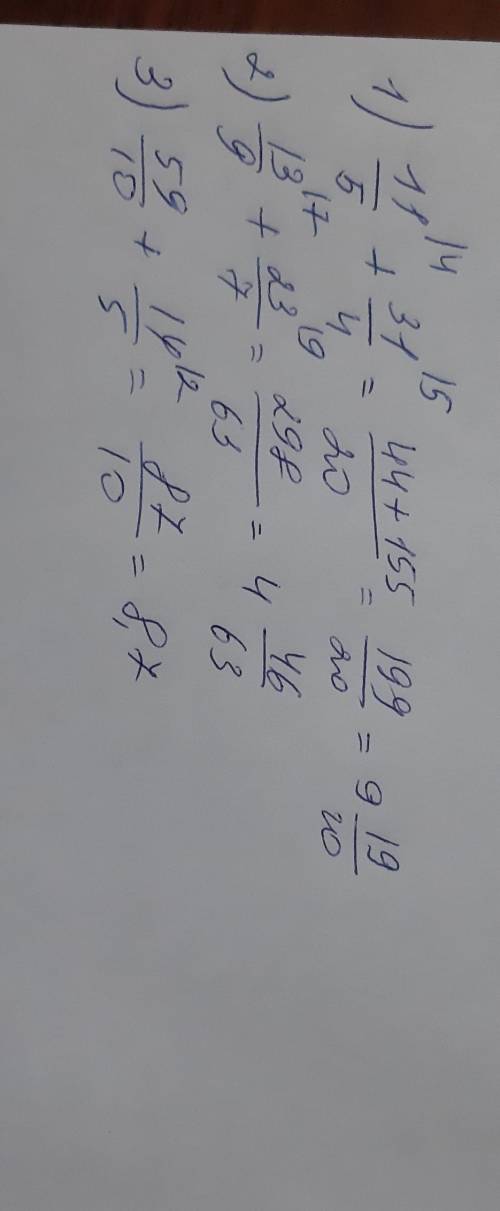 1) 11/5 |4 + 31/4 |5 = 44+155/20 = 199/20 = 9 19/20
2) 13/9 |7 + 23/7 |9 = 298/63 = 4 46/63
3) 59/10 + 14/5 |2 = 87/10 = 8,7